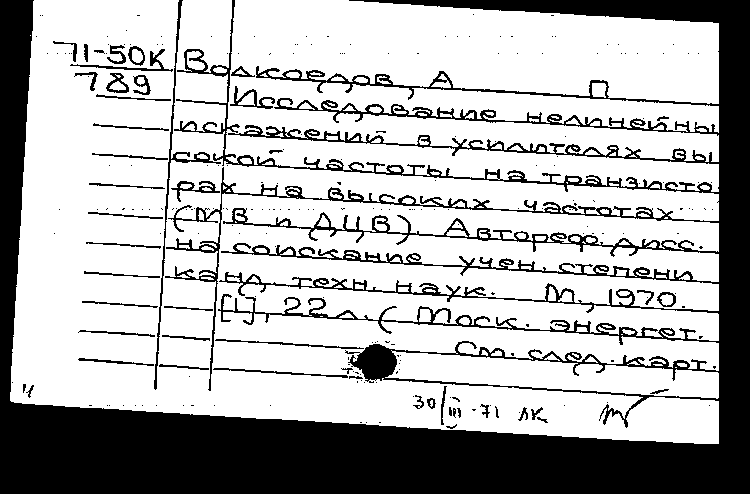 71-50К Волкоедов, А П
789
Исследование нелинейны
искажений в усилителях вы
сокой частоты на транзисто
рах на высоких частотах
(МВ и ДЦВ). Автореф. дисс.
на соискание учен. степени
канд. техн. наук. М., 1970.
[1], 22 л. (Моск. энергет.
См. след. карт.
30/III-71 ЛК